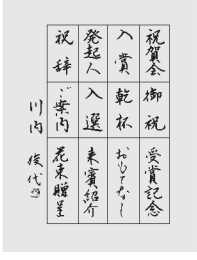 祝賀会 御祝 受賞記念
入賞 乾杯 おもてなし
発起人 入選 来賓紹介
祝辞 ご案内 花束贈呈
川内 俊代